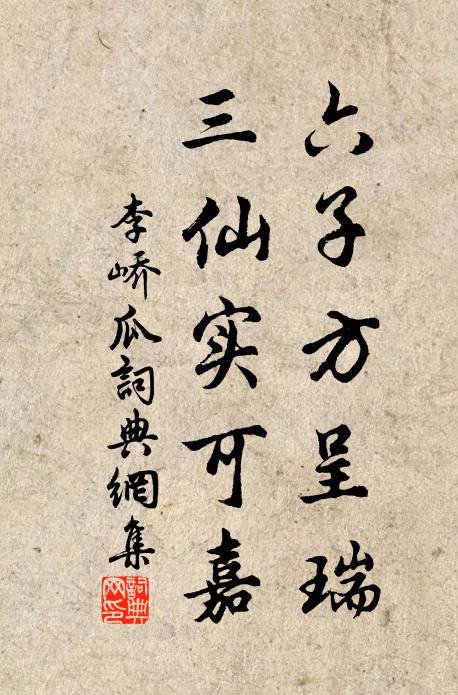 六子方呈瑞
三仙实可嘉
李峤瓜詞典網集
詞典网印